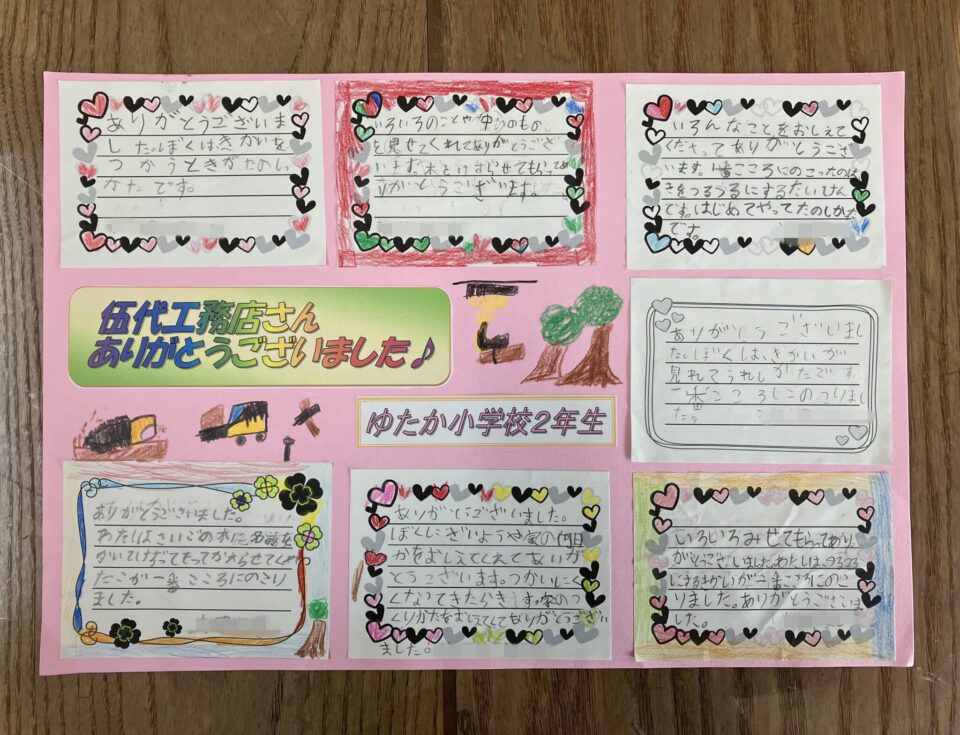 ありがとうございま
した。ぼくはきかいを
つかうときがたのしっ
なたです。
いろいろのことや中のもの
を見せてくれてありがとうござ
います。木とけずらせてもらってあ
りがとうございます。
いろんなことをおしえて
くださってありがとうござ
います。一番こころにのこったのは
きをつるつるにするたいけん
です。はじめてやってたのしかた
です。
伍代工務店さん
ありがとうございました♪
ありがとうございまし
た。ぼくは、きかいが
見れてうれしかたです
一番こころしこのてりまし
た。
ゆたか小学校2年生
ありがとうございました。
わたしはさいごの木に名前を
かいてけずってもってかえらせてくれ
たこが一番こころにのこり
ました。
ありがとうございました。
ぼくにざいりょうや家の何日
かをおしえてくれてありが
とうございます。つかいにく
くなてきたらき
くりかたをおしえてくれてありがとうござい
ました。
いろいろみせてもらってあり
がとうございました。わたしは、つるつる
にするきかいが一番こころにのこ
りました。ありがとうございま
した。